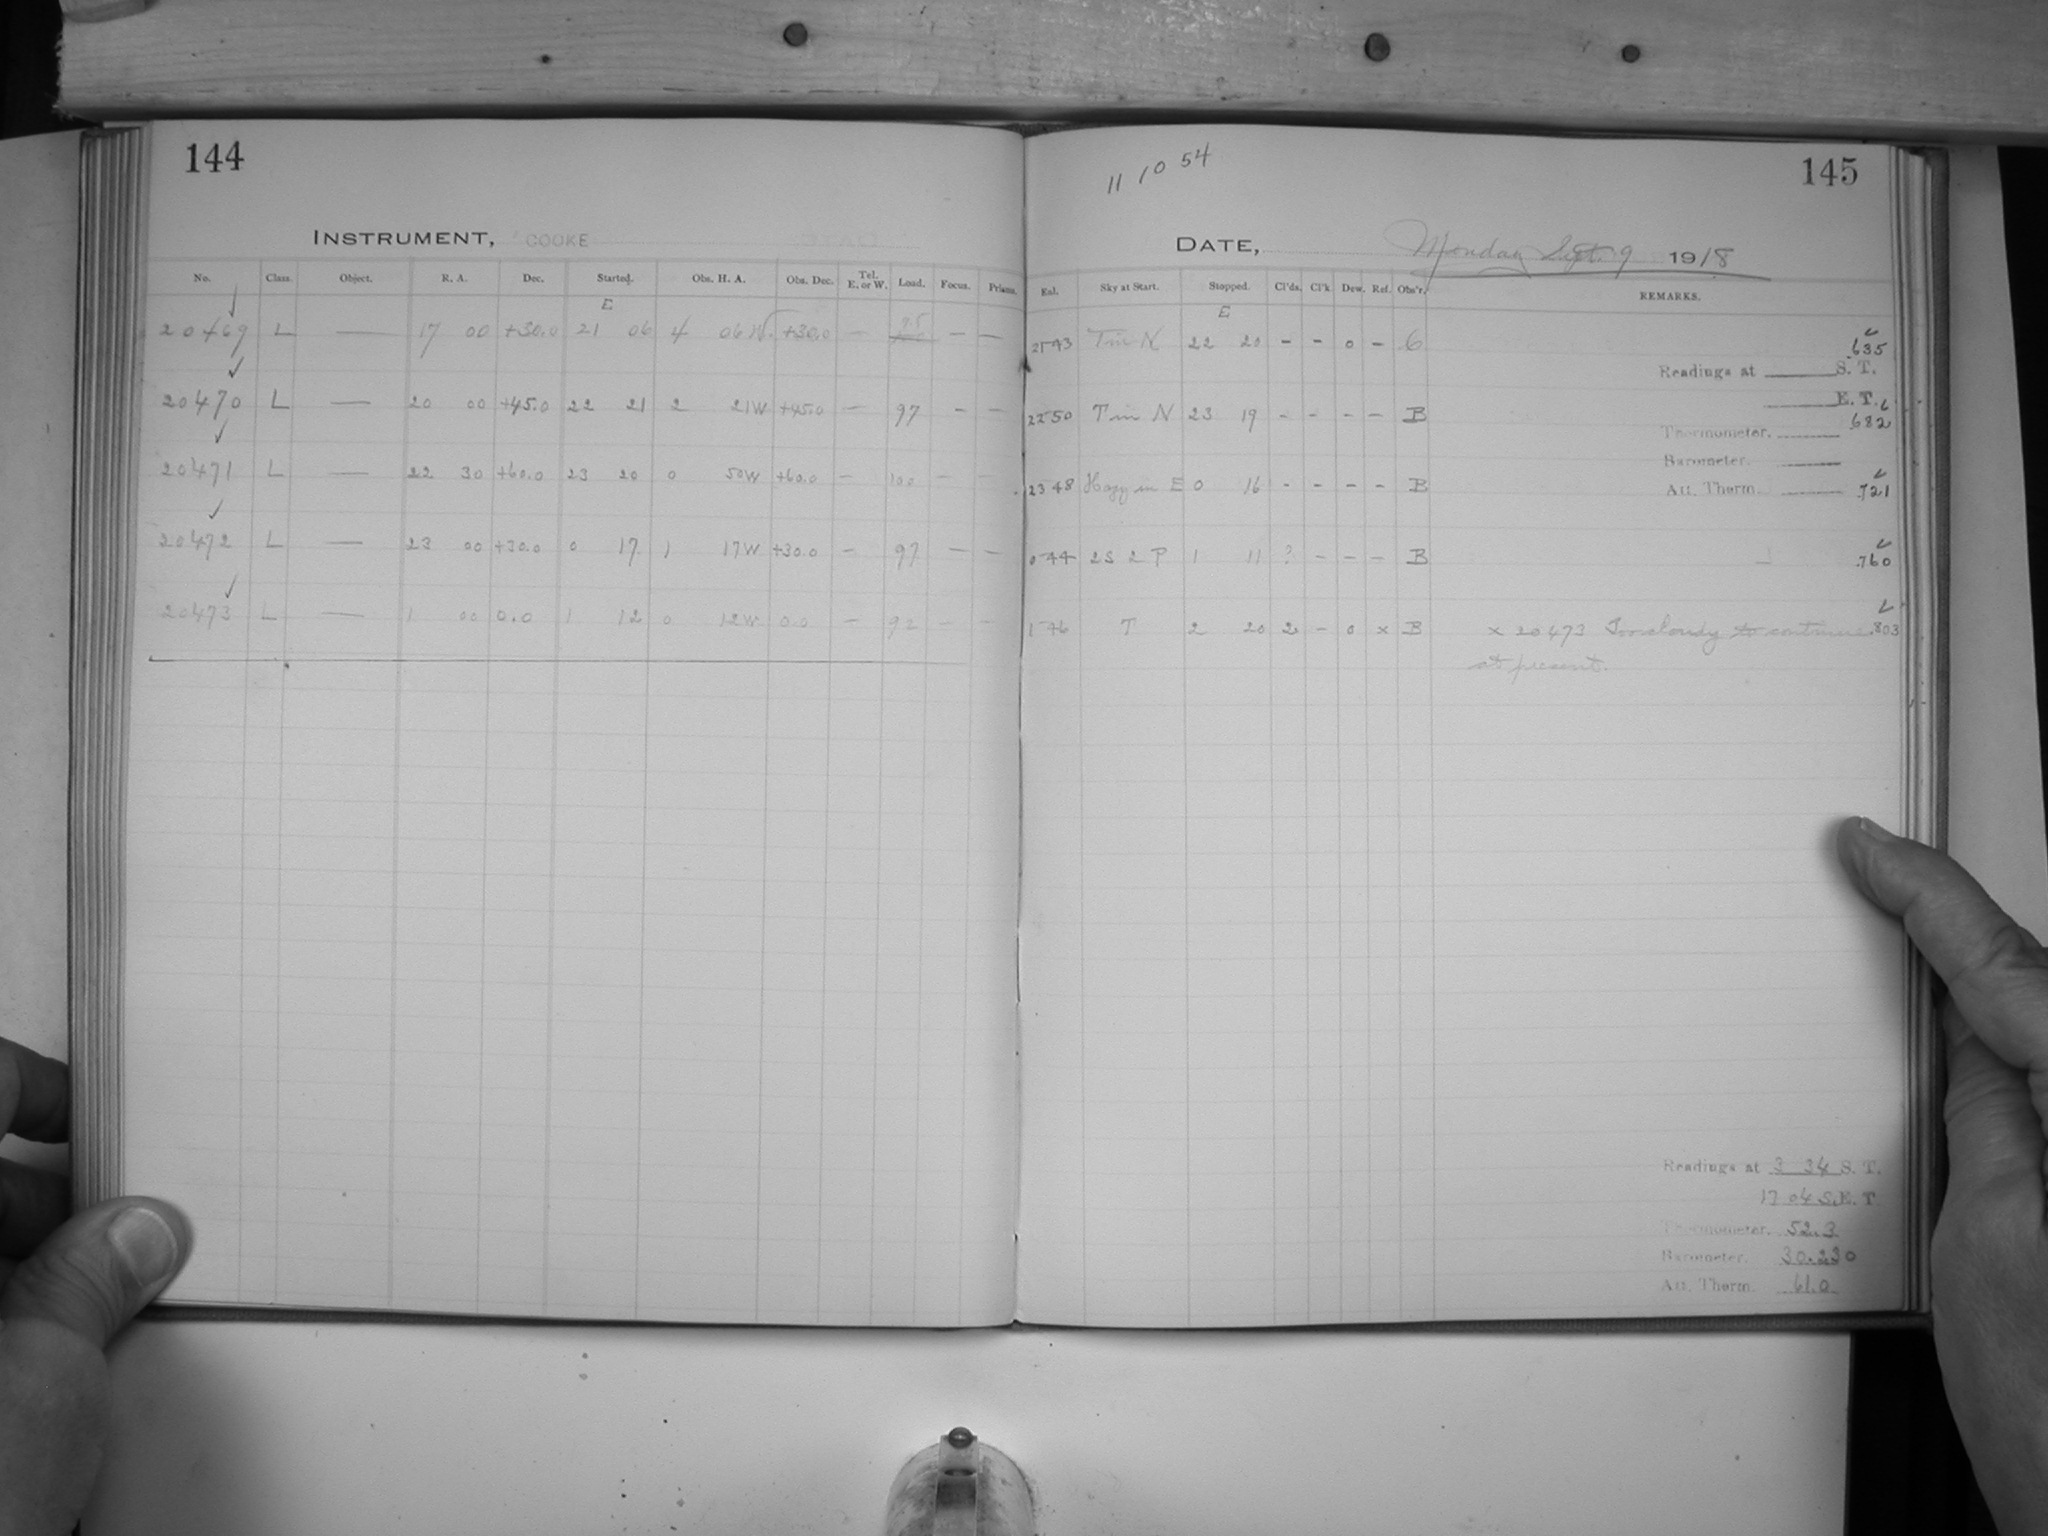 144
INSTRUMENT, COOKE
No. Class. Object. R. A. Dec. Started. Obs. H. A. Obs. Dec. Tel. E. or W. Load. Focus. Prisms.
E
95
20469 L — 17 00 +30.0 21 06 4 06 W. +30.0 — — —
20470 L — 20 00 +45.0 22 21 2 21W +45.0 — 97 - -
20471 L — 22 30 +60.0 23 20 0 50W +60.0 — 100 - -
20472 L — 23 00 +30.0 0 17 1 17W +30.0 — 97 — —
20473 L — 1 00 0.0 1 12 0 12W 0.0 — 92 — —
11 10 54
145
DATE, Monday Sept. 9 1918
Exl. Sky at Start. Stopped. Cl'ds. Cl'k Dew. Ref. Obs'r. REMARKS.
E
2143 T in N 22 20 - - 0 - .635
Readings at S. T.
E. T.
2250 T in N 23 19 - - - - B .682
Thermometer.
Barometer.
2348 Hazy in E 0 16 - - - - B Att. Therm .721
044 2S 2 P 1 11 ? - - - B .760
146 T 2 20 2 - 0 x B x 20473 Too cloudy to continue .803
at present.
Readings at 3 34 S. T.
17 04 S.E. T
Thermometer. 52.3
Barometer. 30.230
Att. Therm. 61.0